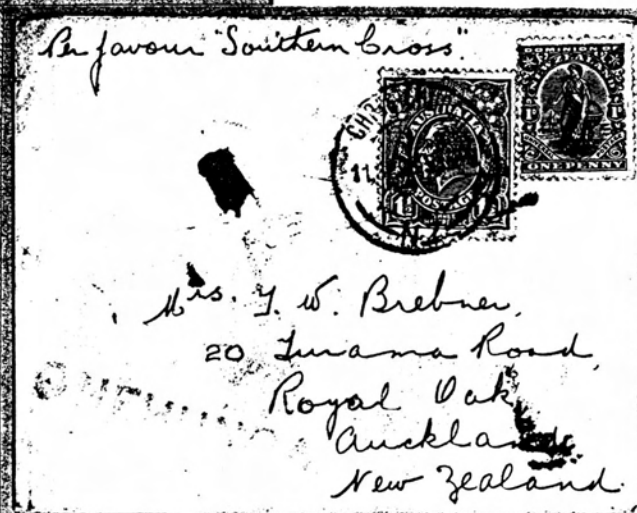 Per favour "Southern Cross".
CHR
AUSTRALIA
11
POSTAGE
N.Z
ONE PENNY
Mrs. T. W. Brebner,
20 Turama Road,
Royal Oak,
Auckland
New Zealand.